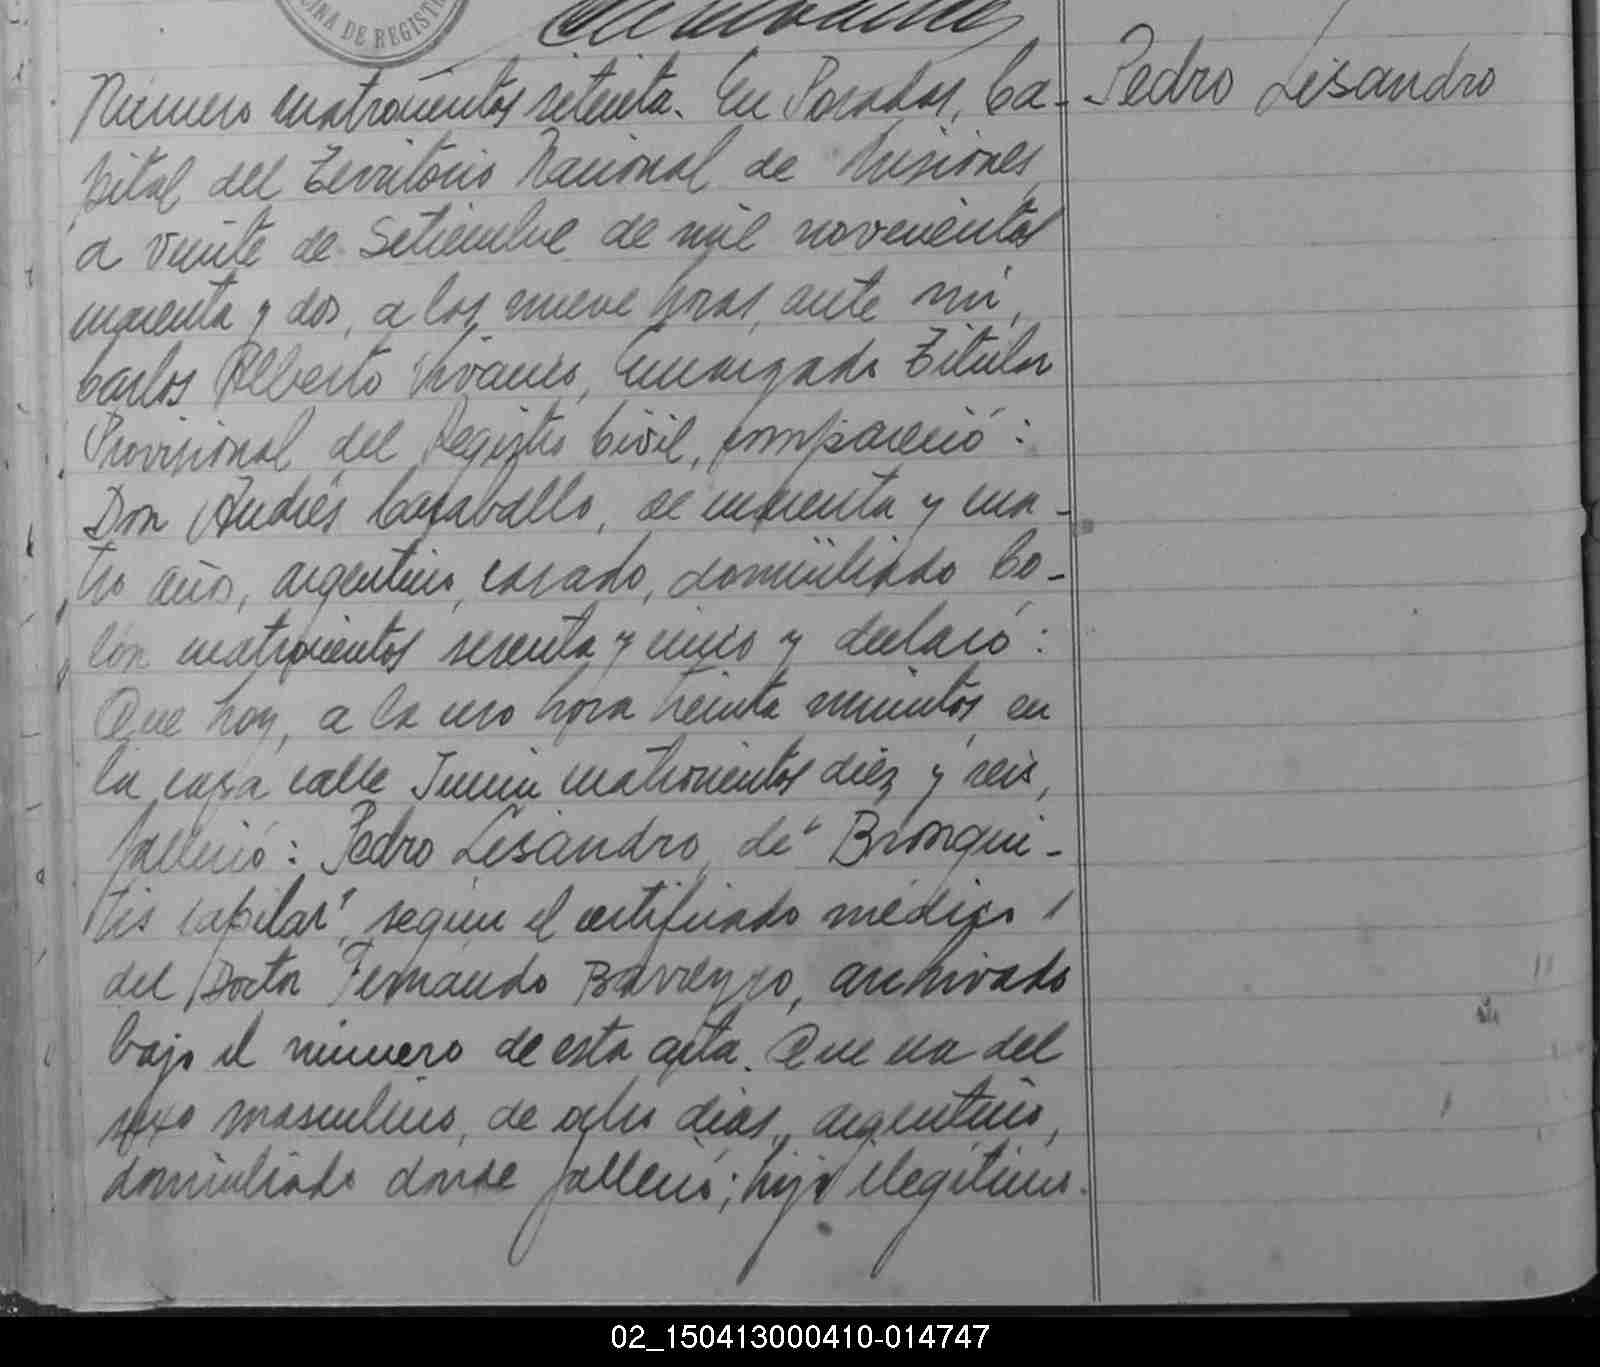 CINA DE REGISTR
Número cuatrocientos setenta. En Posadas, Ca-
Pedro Lisandro
pital del Territorio Nacional de Misiones,
a veinte de Setiembre de mil novecientos
cuarenta y dos, a las nueve horas, ante mí,
Carlos Alberto Vivanco, Encargado Titular
Provisional del Registro Civil, compareció:
Don Andrés Caraballo, de cuarenta y cua-
tro años, argentino, casado, domiciliado Co-
lón cuatrocientos sesenta y cinco y declaró:
Que hoy, a la una hora treinta minutos, en
la casa calle Junin cuatrocientos diez y seis,
falleció: Pedro Lisandro, de "Bronqui-
tis capilar", según el certificado médico
del Doctor Fernando Barreyro, archivado
bajo el número de esta acta. Que era del
sexo masculino, de ocho días, argentino,
domiciliado donde falleció; hijo ilegítimo.
02_150413000410-014747